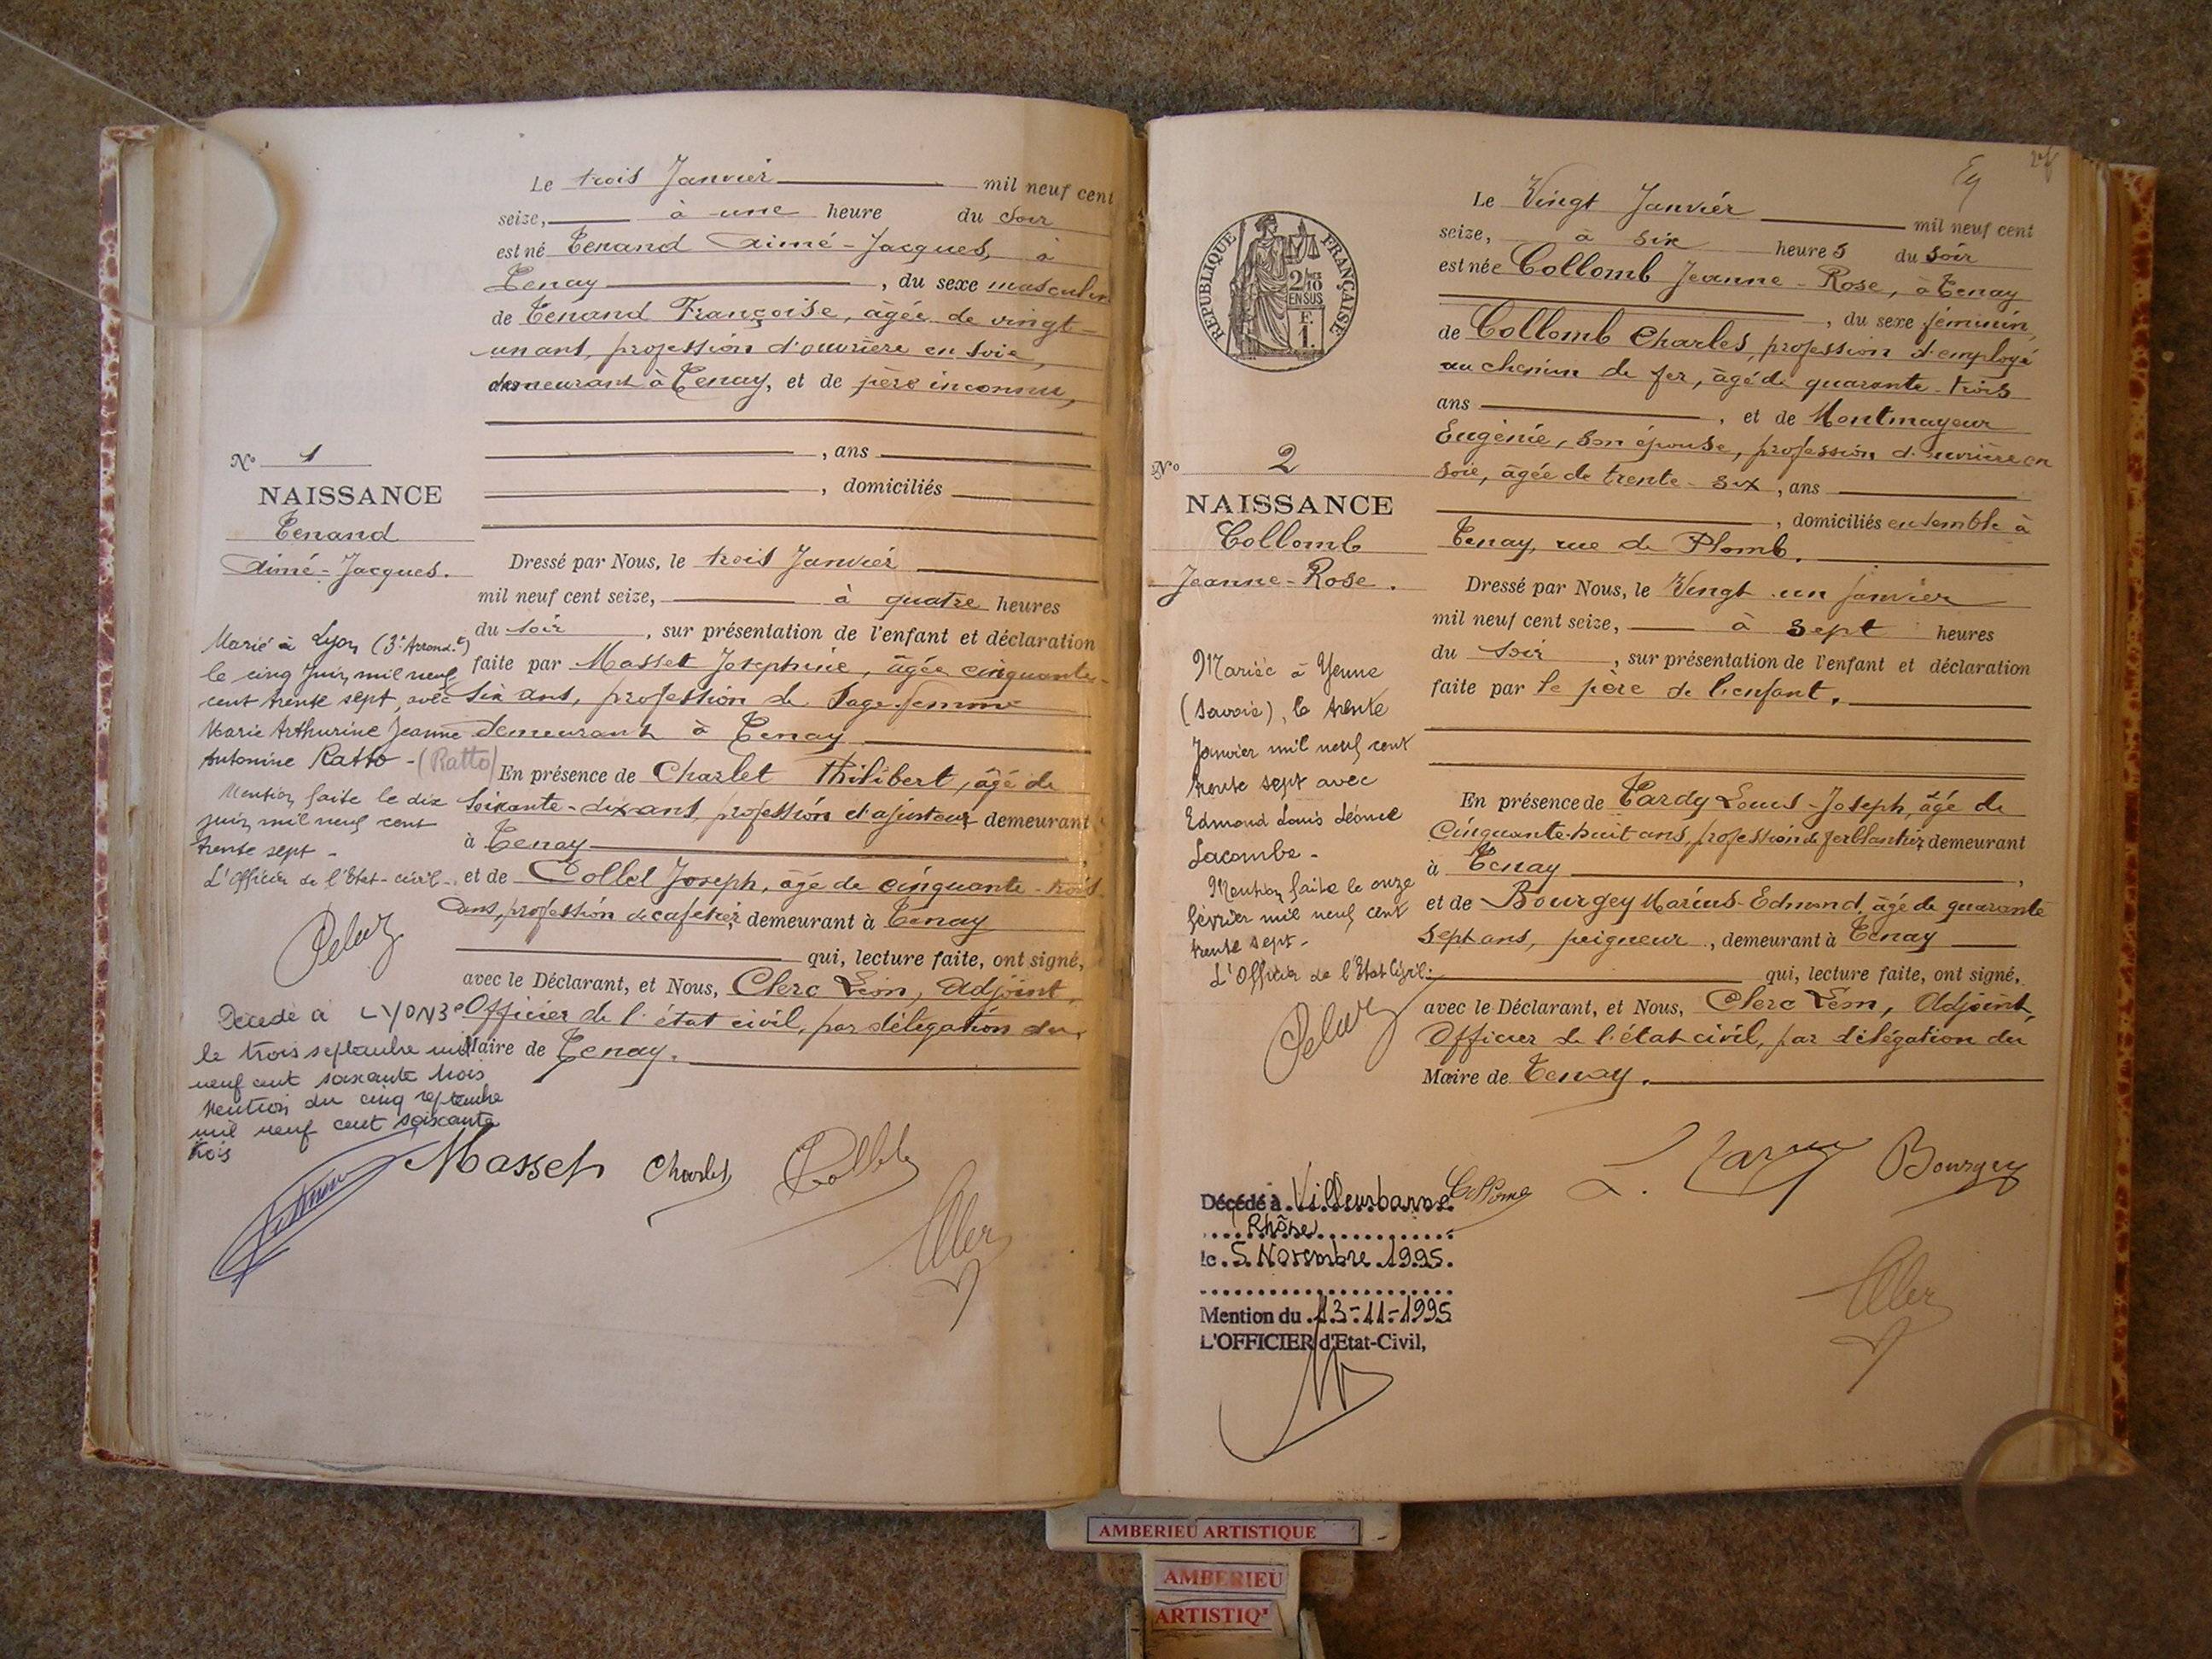 Le trois Janvier mil neuf cent
seize, à une heure du Soir
est né Tenand Aimé-Jacques, à
Tenay, du sexe masculin
de Tenand Françoise, âgée de vingt-
un ans, profession d'ouvrière en soie,
demeurant à Tenay, et de père inconnu,
, ans
, domiciliés
N° 1
NAISSANCE
Tenand
Aimé-Jacques.
Dressé par Nous, le trois Janvier
mil neuf cent seize, à quatre heures
du soir, sur présentation de l'enfant et déclaration
faite par Masset Josephine, âgée cinquante-
six ans, profession de Sage-femme
demeurant à Tenay
En présence de Charlet Philibert, âgé de
soixante-dix ans, profession d'ajusteur demeurant
à Tenay,
et de Collet Joseph, âgé de cinquante-trois
ans, profession de cafetier, demeurant à Tenay
qui, lecture faite, ont signé,
avec le Déclarant, et Nous, Clerc Léon, Adjoint,
Officier de l'état civil, par délégation du
Maire de Tenay.
Marié à Lyon (3e Arrond.t)
le cinq Juin mil neuf
cent trente sept, avec
Marie Arthurine Jeanne
Antonine Ratto - (Ratto)
Mention faite le dix
juin mil neuf cent
trente sept -
L'Officier de l'Etat-civil -
Décédé à LYON 3e
le trois septembre mil
neuf cent soixante trois
Mention du cinq septembre
mil neuf cent soixante
trois
Masset Charlet Collet
Clerc
24
Le Vingt Janvier mil neuf cent
seize, à six heures du soir
est née Collomb Jeanne-Rose, à Tenay
, du sexe féminin,
de Collomb Charles, profession d'employé
au chemin de fer, âgé de quarante-trois
ans, et de Montmayeur
Eugénie, son épouse, profession d'ouvrière en
soie, âgée de trente-six, ans
, domiciliés ensemble à
Tenay, rue de Plomb.
RÉPUBLIQUE FRANÇAISE
2/10 EN SUS
F. 1.
N° 2
NAISSANCE
Collomb
Jeanne-Rose.
Dressé par Nous, le Vingt un janvier
mil neuf cent seize, à sept heures
du soir, sur présentation de l'enfant et déclaration
faite par le père de l'enfant.
En présence de Tardy Louis-Joseph, âgé de
Cinquante-huit ans, profession de ferblantier, demeurant
à Tenay,
et de Bourgey Marius-Edmond, âgé de quarante
sept ans, peigneur, demeurant à Tenay
qui, lecture faite, ont signé,
avec le Déclarant, et Nous, Clerc Léon, Adjoint,
Officier de l'état civil, par délégation du
Maire de Tenay.
Mariée à Yenne
(Savoie), le trente
Janvier mil neuf cent
trente sept avec
Edmond Louis Léonce
Lacombe -
Mention faite le onze
février mil neuf cent
trente sept -
L'Officier de l'Etat Civil:
Collomb L. Tardy Bourgey
Clerc
Décédé à Villeurbanne
(Rhône)
le 5 Novembre 1995.
Mention du 13-11-1995
L'OFFICIER d'Etat-Civil,
AMBERIEU ARTISTIQUE
AMBERIEU
ARTISTIQ